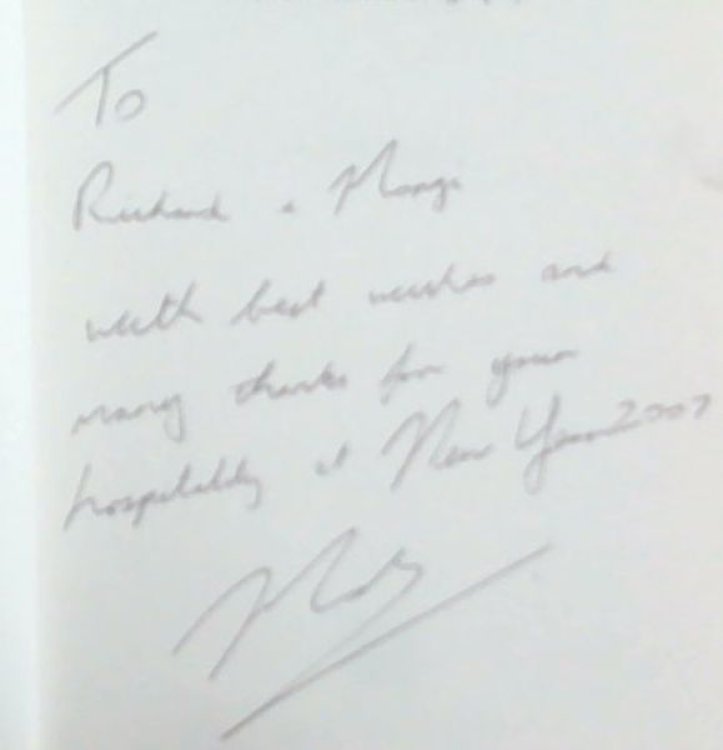 To
Richard &
with best wishes and
many thanks for your
hospitality at New Year 2007